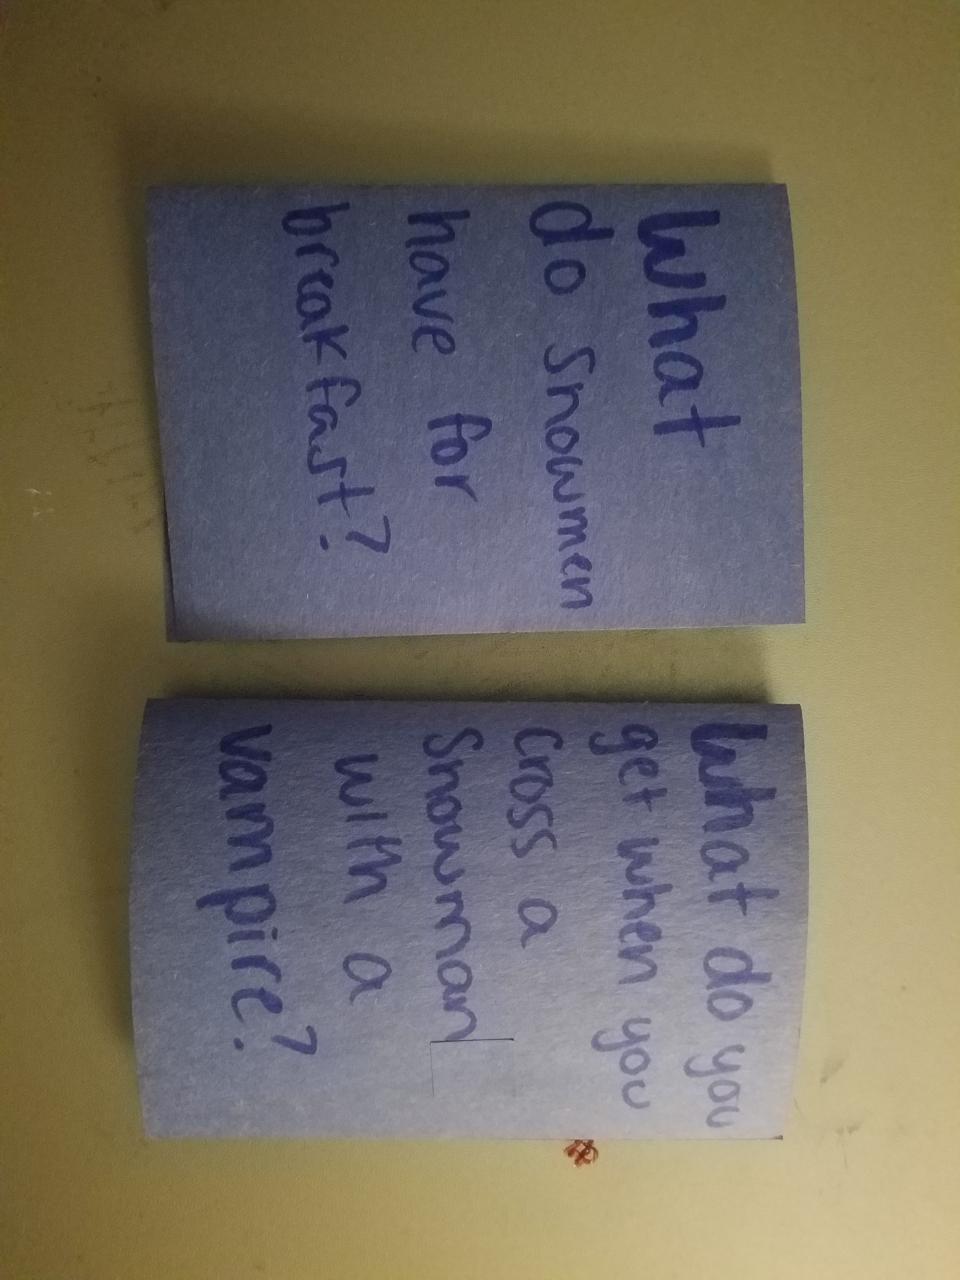 What
do snowmen
have for
breakfast?
What do you
get when you
cross a
snowman
with a
vampire?